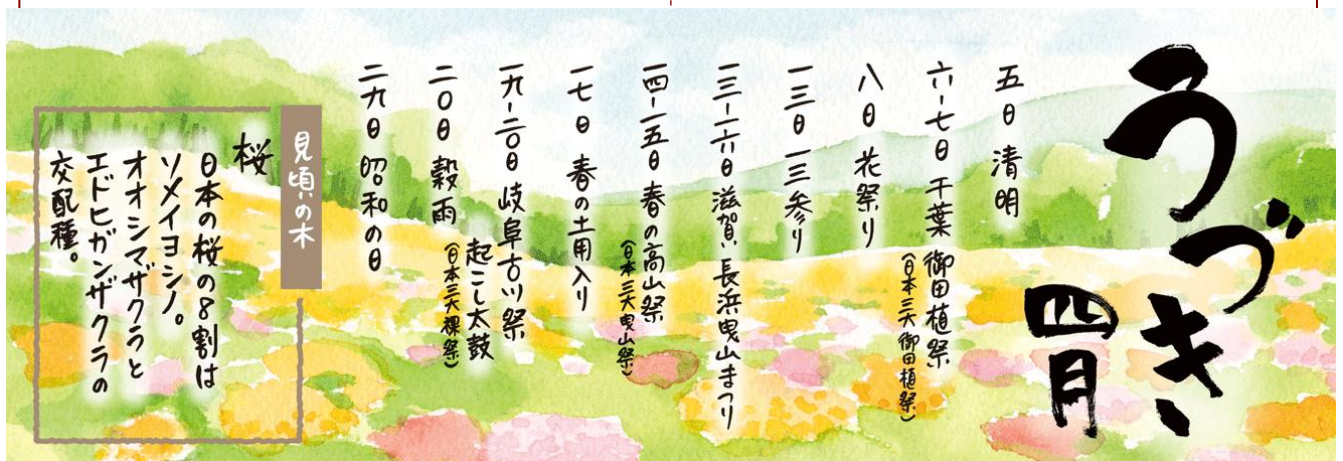 うづき
四月
五日 清明
六-七日 千葉 御田植祭
(日本三大御田植祭)
八日 花祭り
一三日 一三参り
一三-一六日 滋賀、長浜曳山まつり
一四-一五日 春の高山祭
(日本三大曳山祭)
一七日 春の土用入り
一九-二〇日 岐阜古川祭
起こし太鼓
(日本三大裸祭)
二〇日 穀雨
二九日 昭和の日
見頃の木
桜
日本の桜の8割は
ソメイヨシノ。
オオシマザクラと
エドヒガンザクラの
交配種。